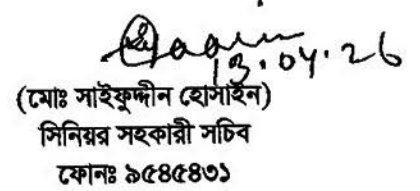 13.04.26
(মোঃ সাইফুদ্দীন হোসাইন)
সিনিয়র সহকারী সচিব
ফোনঃ ৯৫৪৫৪৩১